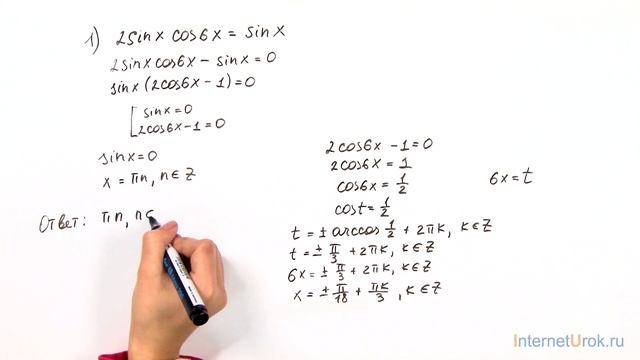 1) 2sinx cos6x = sinx
2sinx cos6x - sinx = 0
sinx (2cos6x - 1) = 0
[ sinx = 0
2cos6x - 1 = 0
sinx = 0
x = πn, n ∈ Z
Ответ: πn, n ∈
2cos6x - 1 = 0
2cos6x = 1
cos6x = 1/2
cost = 1/2
t = ± arccos 1/2 + 2πk, k ∈ Z
t = ± π/3 + 2πk, k ∈ Z
6x = ± π/3 + 2πk, k ∈ Z
x = ± π/18 + πk/3, k ∈ Z
6x = t
InternetUrok.ru